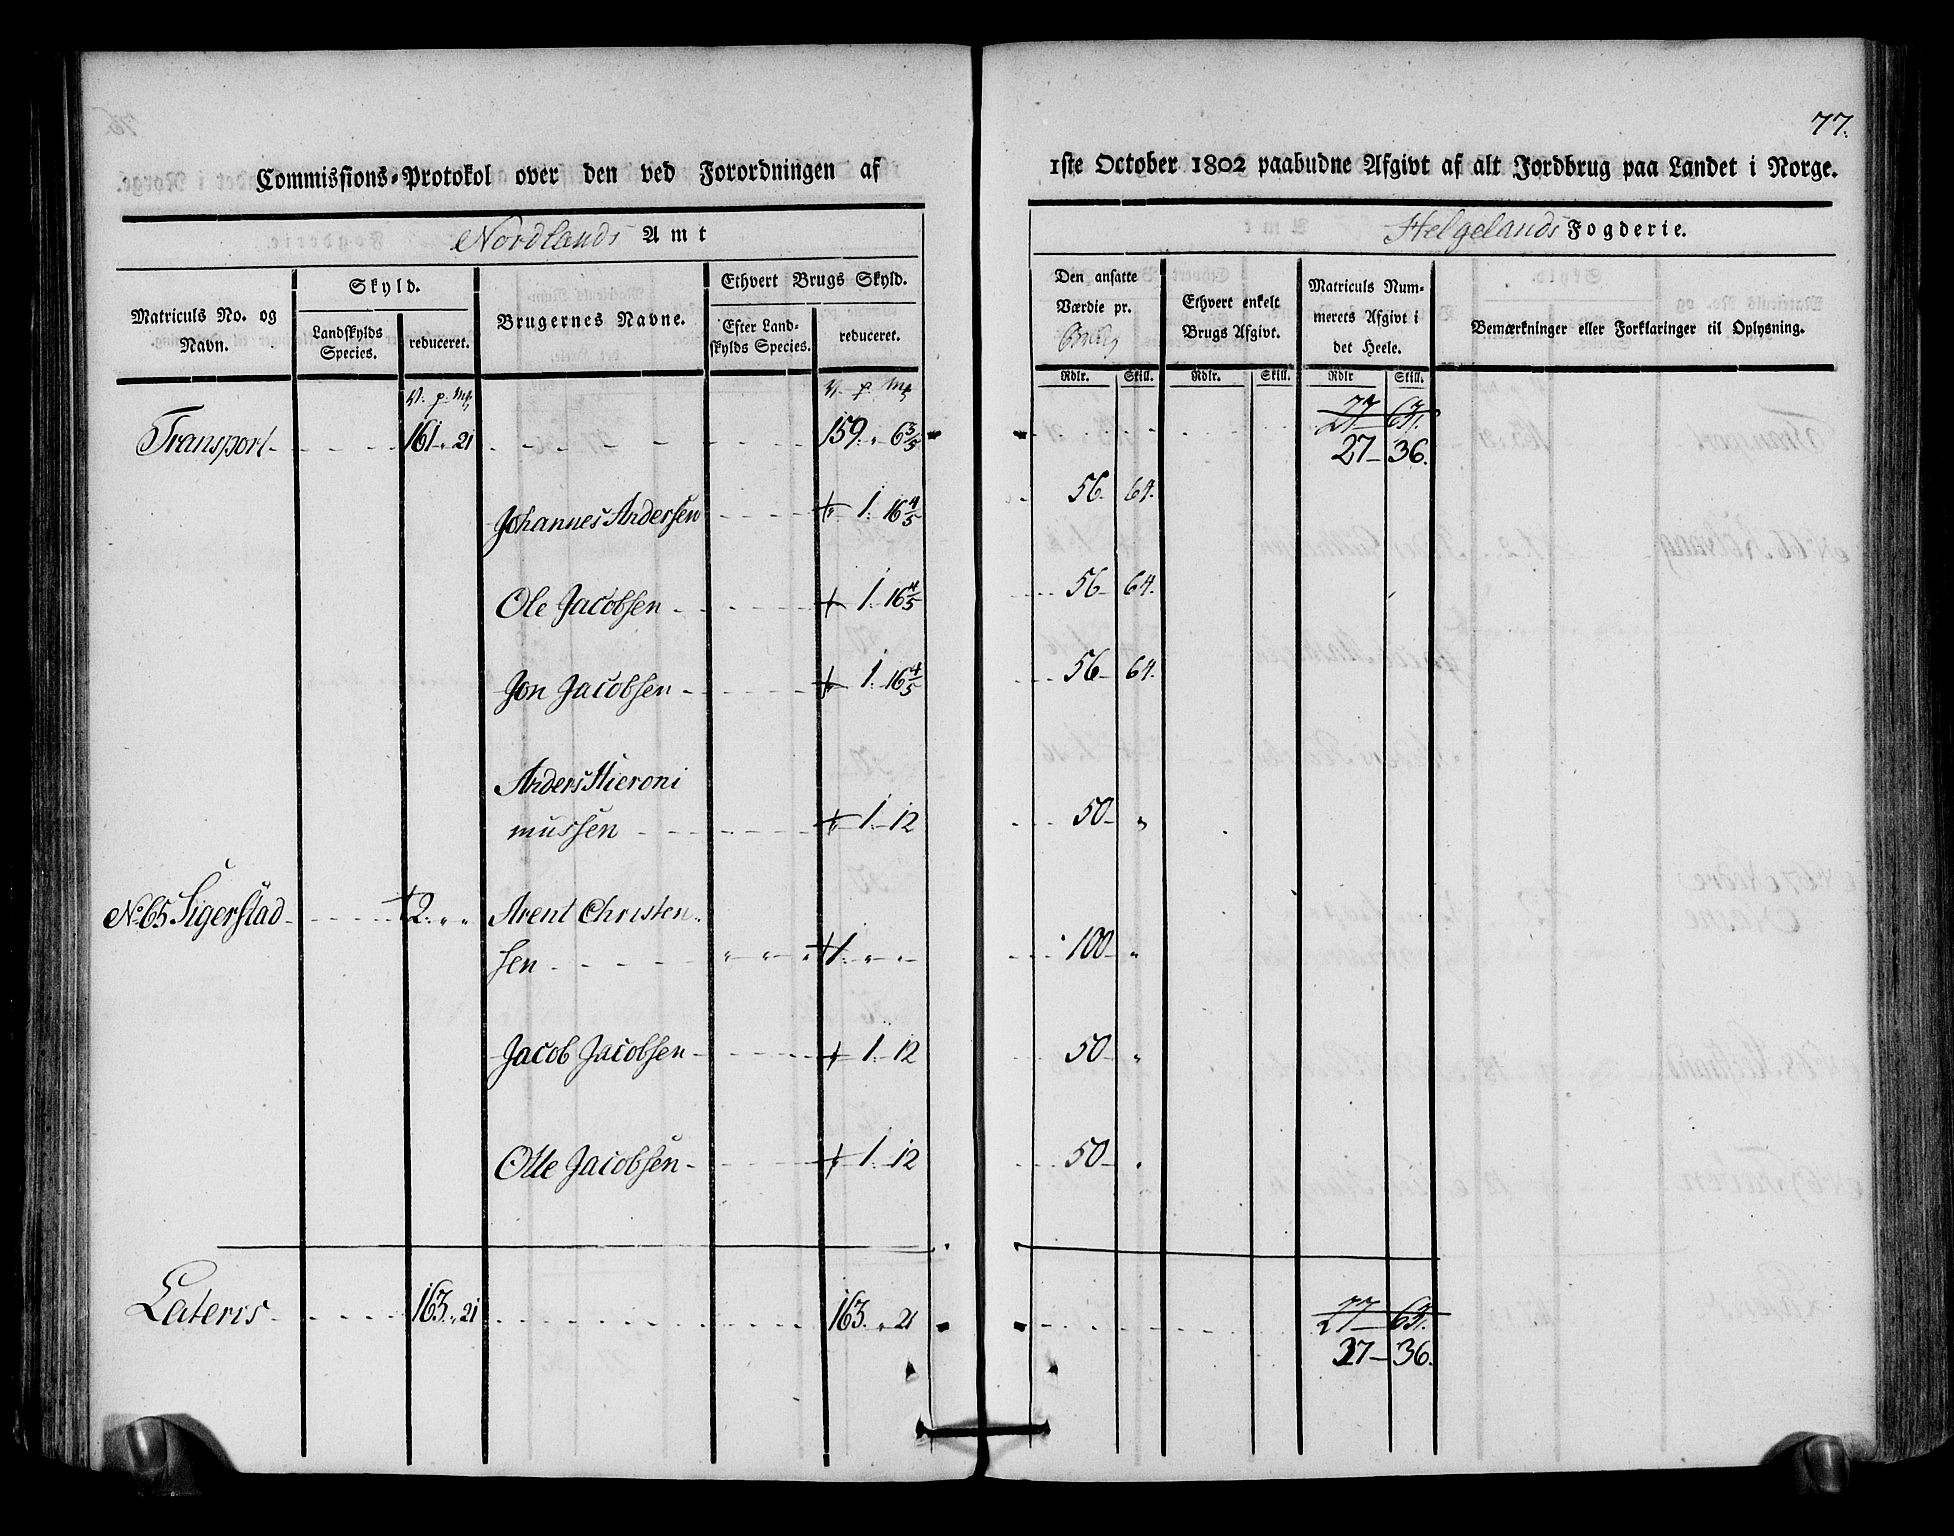 77.
Commissions-Protokol over den ved Forordningen af 1ste October 1802 paabudne Afgivt af alt Jordbrug paa Landet i Norge.
Nordlands Amt
Helgelands Fogderie.
Matriculs No. og Navn.
Skyld.
Landskylds Species.
reduceret.
Brugernes Navne.
Ethvert Brugs Skyld.
Efter Landskylds Species.
reduceret.
Den ansatte Værdie pr.
Ethvert enkelt Brugs Afgivt.
Matriculs Nummerets Afgivt i det Heele.
Bemærkninger eller Forklaringer til Oplysning.
Rdlr. Skill. Rdlr. Skill. Rdlr Skill.
V. p. mk V. p mk
27 64.
Transport - - - - 161 „ 21 - - - 159. „ 6 3/5 27 - 36.
Johannes Andersen - - - „ 1. 16 4/5 56. 64.
Ole Jacobsen - - - „ 1. 16 4/5 56 - 64.
Jon Jacobsen - - - „ 1. 16 4/5 56 - 64.
Anders Hieroni
mussen - - - „ 1. - 12 50 - „
No. 65 Sigerstad - - - 2. „ „ Arent Christen
sen - - - „ „ „ 1. „ „ 100 - „
Jacob Jacobsen - - - „ 1. 12 50 - „
Olle Jacobsen - - - „ 1. 12 50 - „
27 64.
Lateris - - - 163 „ 21 163 „ 21 27 - 36.